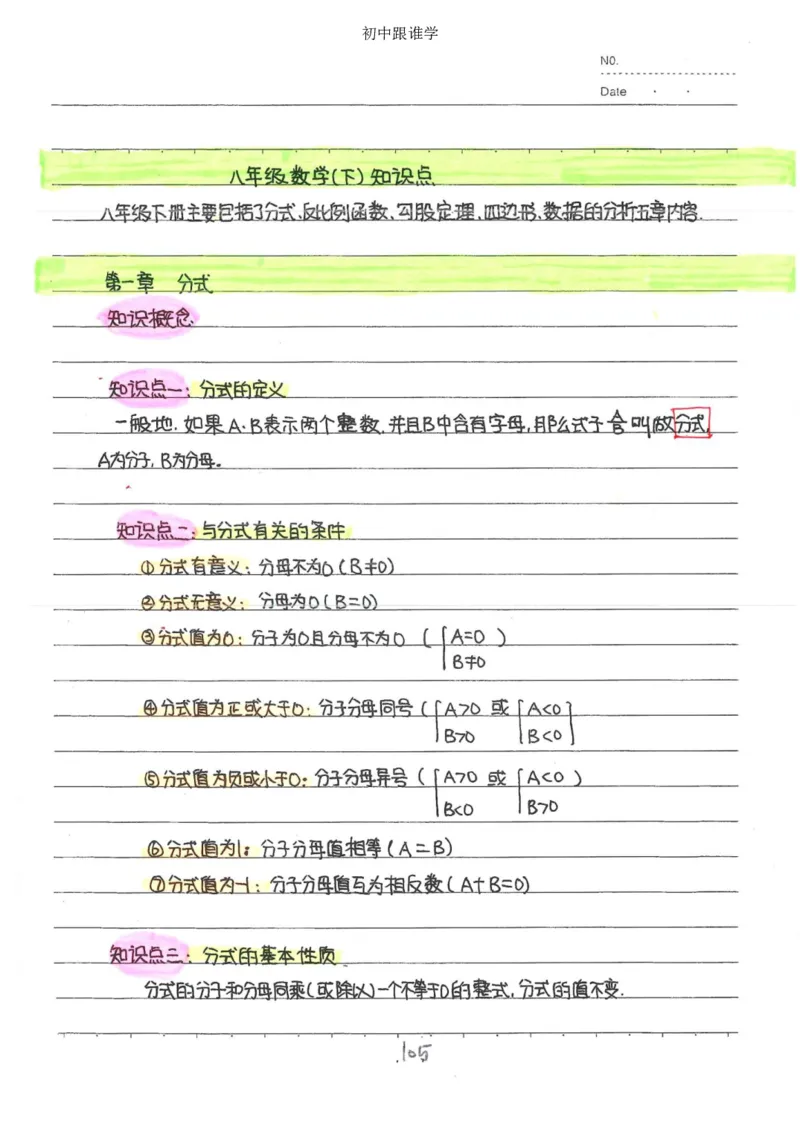 初中跟谁学
NO.
Date · ·
八年级数学(下)知识点
八年级下册主要包括了分式、反比例函数、勾股定理、四边形、数据的分析五章内容.
第一章 分式
知识概念
知识点一: 分式的定义
一般地.如果A、B表示两个整数.并且B中含有字母,那么式子 A/B 叫做分式.
A为分子, B为分母。
知识点二: 与分式有关的条件
①分式有意义: 分母不为0(B≠0)
②分式无意义: 分母为0(B=0)
③分式值为0: 分子为0且分母不为0 ( { A=0 )
B≠0
④分式值为正或大于0: 分子分母同号 ( { A>0 或 { A<0 ]
B>0 B<0
⑤分式值为负或小于0: 分子分母异号 ( { A>0 或 { A<0 )
B<0 B>0
⑥分式值为1: 分子分母值相等(A=B)
⑦分式值为-1: 分子分母值互为相反数(A+B=0)
知识点三: 分式的基本性质
分式的分子和分母同乘(或除以)一个不等于0的整式,分式的值不变.
105